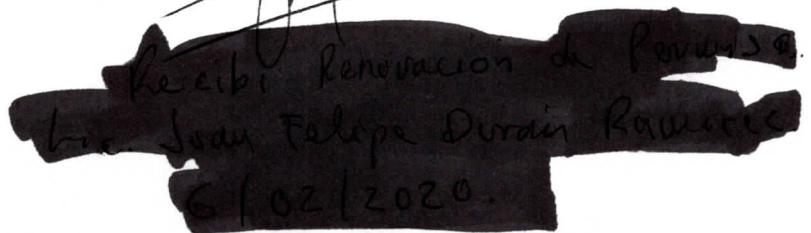 Recibi Renovación de Permiso.
Lic. Juan Felipe Durán Ramírez
6/02/2020.